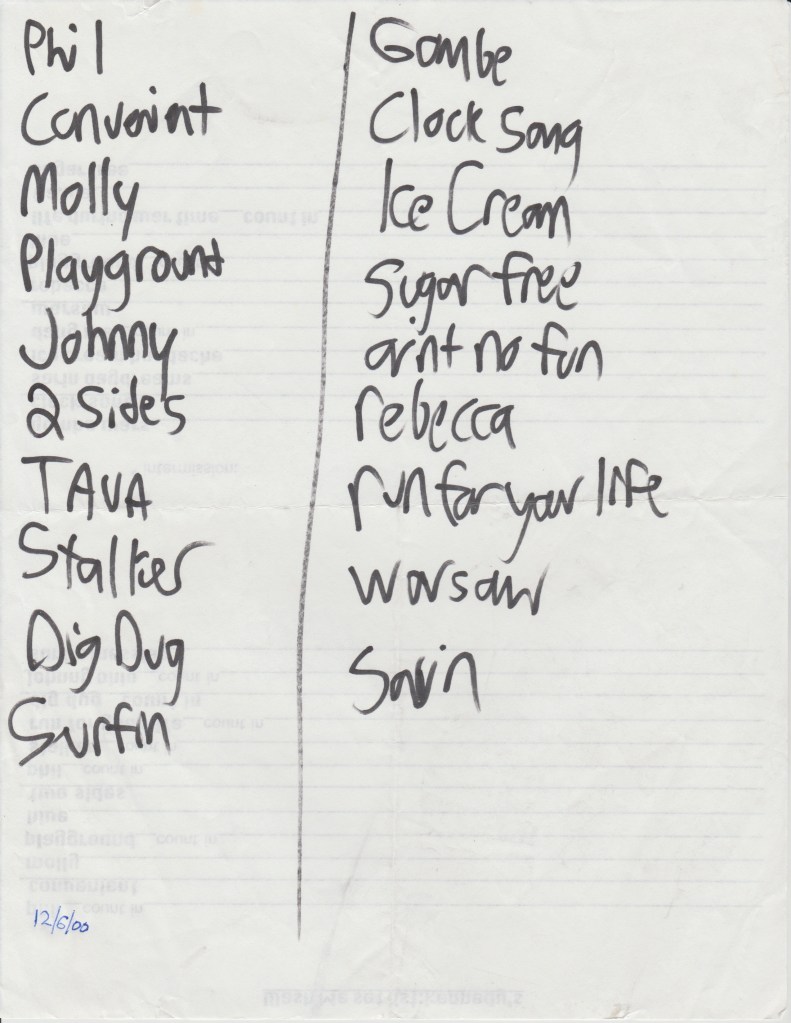 Phil
Convenient
Molly
Playground
Johnny
2 Sides
TAVA
Stalker
Dig Dug
Surfin
12/6/00
Gombe
Clock Song
Ice Cream
Sugar free
aint no fun
rebecca
run for your life
Warsaw
Sarin